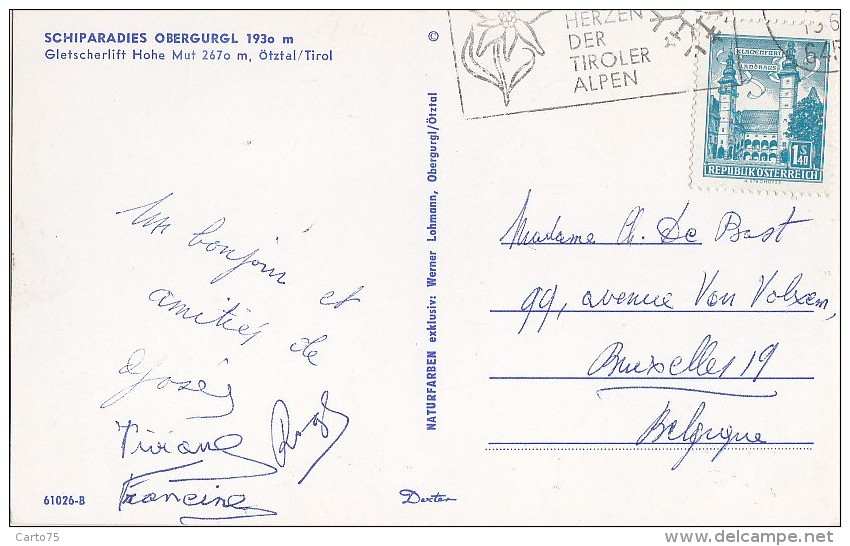 SCHIPARADIES OBERGURGL 1930 m
Gletscherlift Hohe Mut 2670 m, Ötztal/Tirol
Un bonjour et
amitiés de
José
Viviane
Francine
61026-B
©
NATURFARBEN exklusiv: Werner Lohmann, Obergurgl/Ötztal
Dexter
HERZEN
DER
TIROLER
ALPEN
KLAGENFURT
LANDHAUS
1 S 40
REPUBLIK ÖSTERREICH
Madame A. De Bast
99, avenue Van Volxem,
Bruxelles 19
Belgique
Carto75
delcampe.net